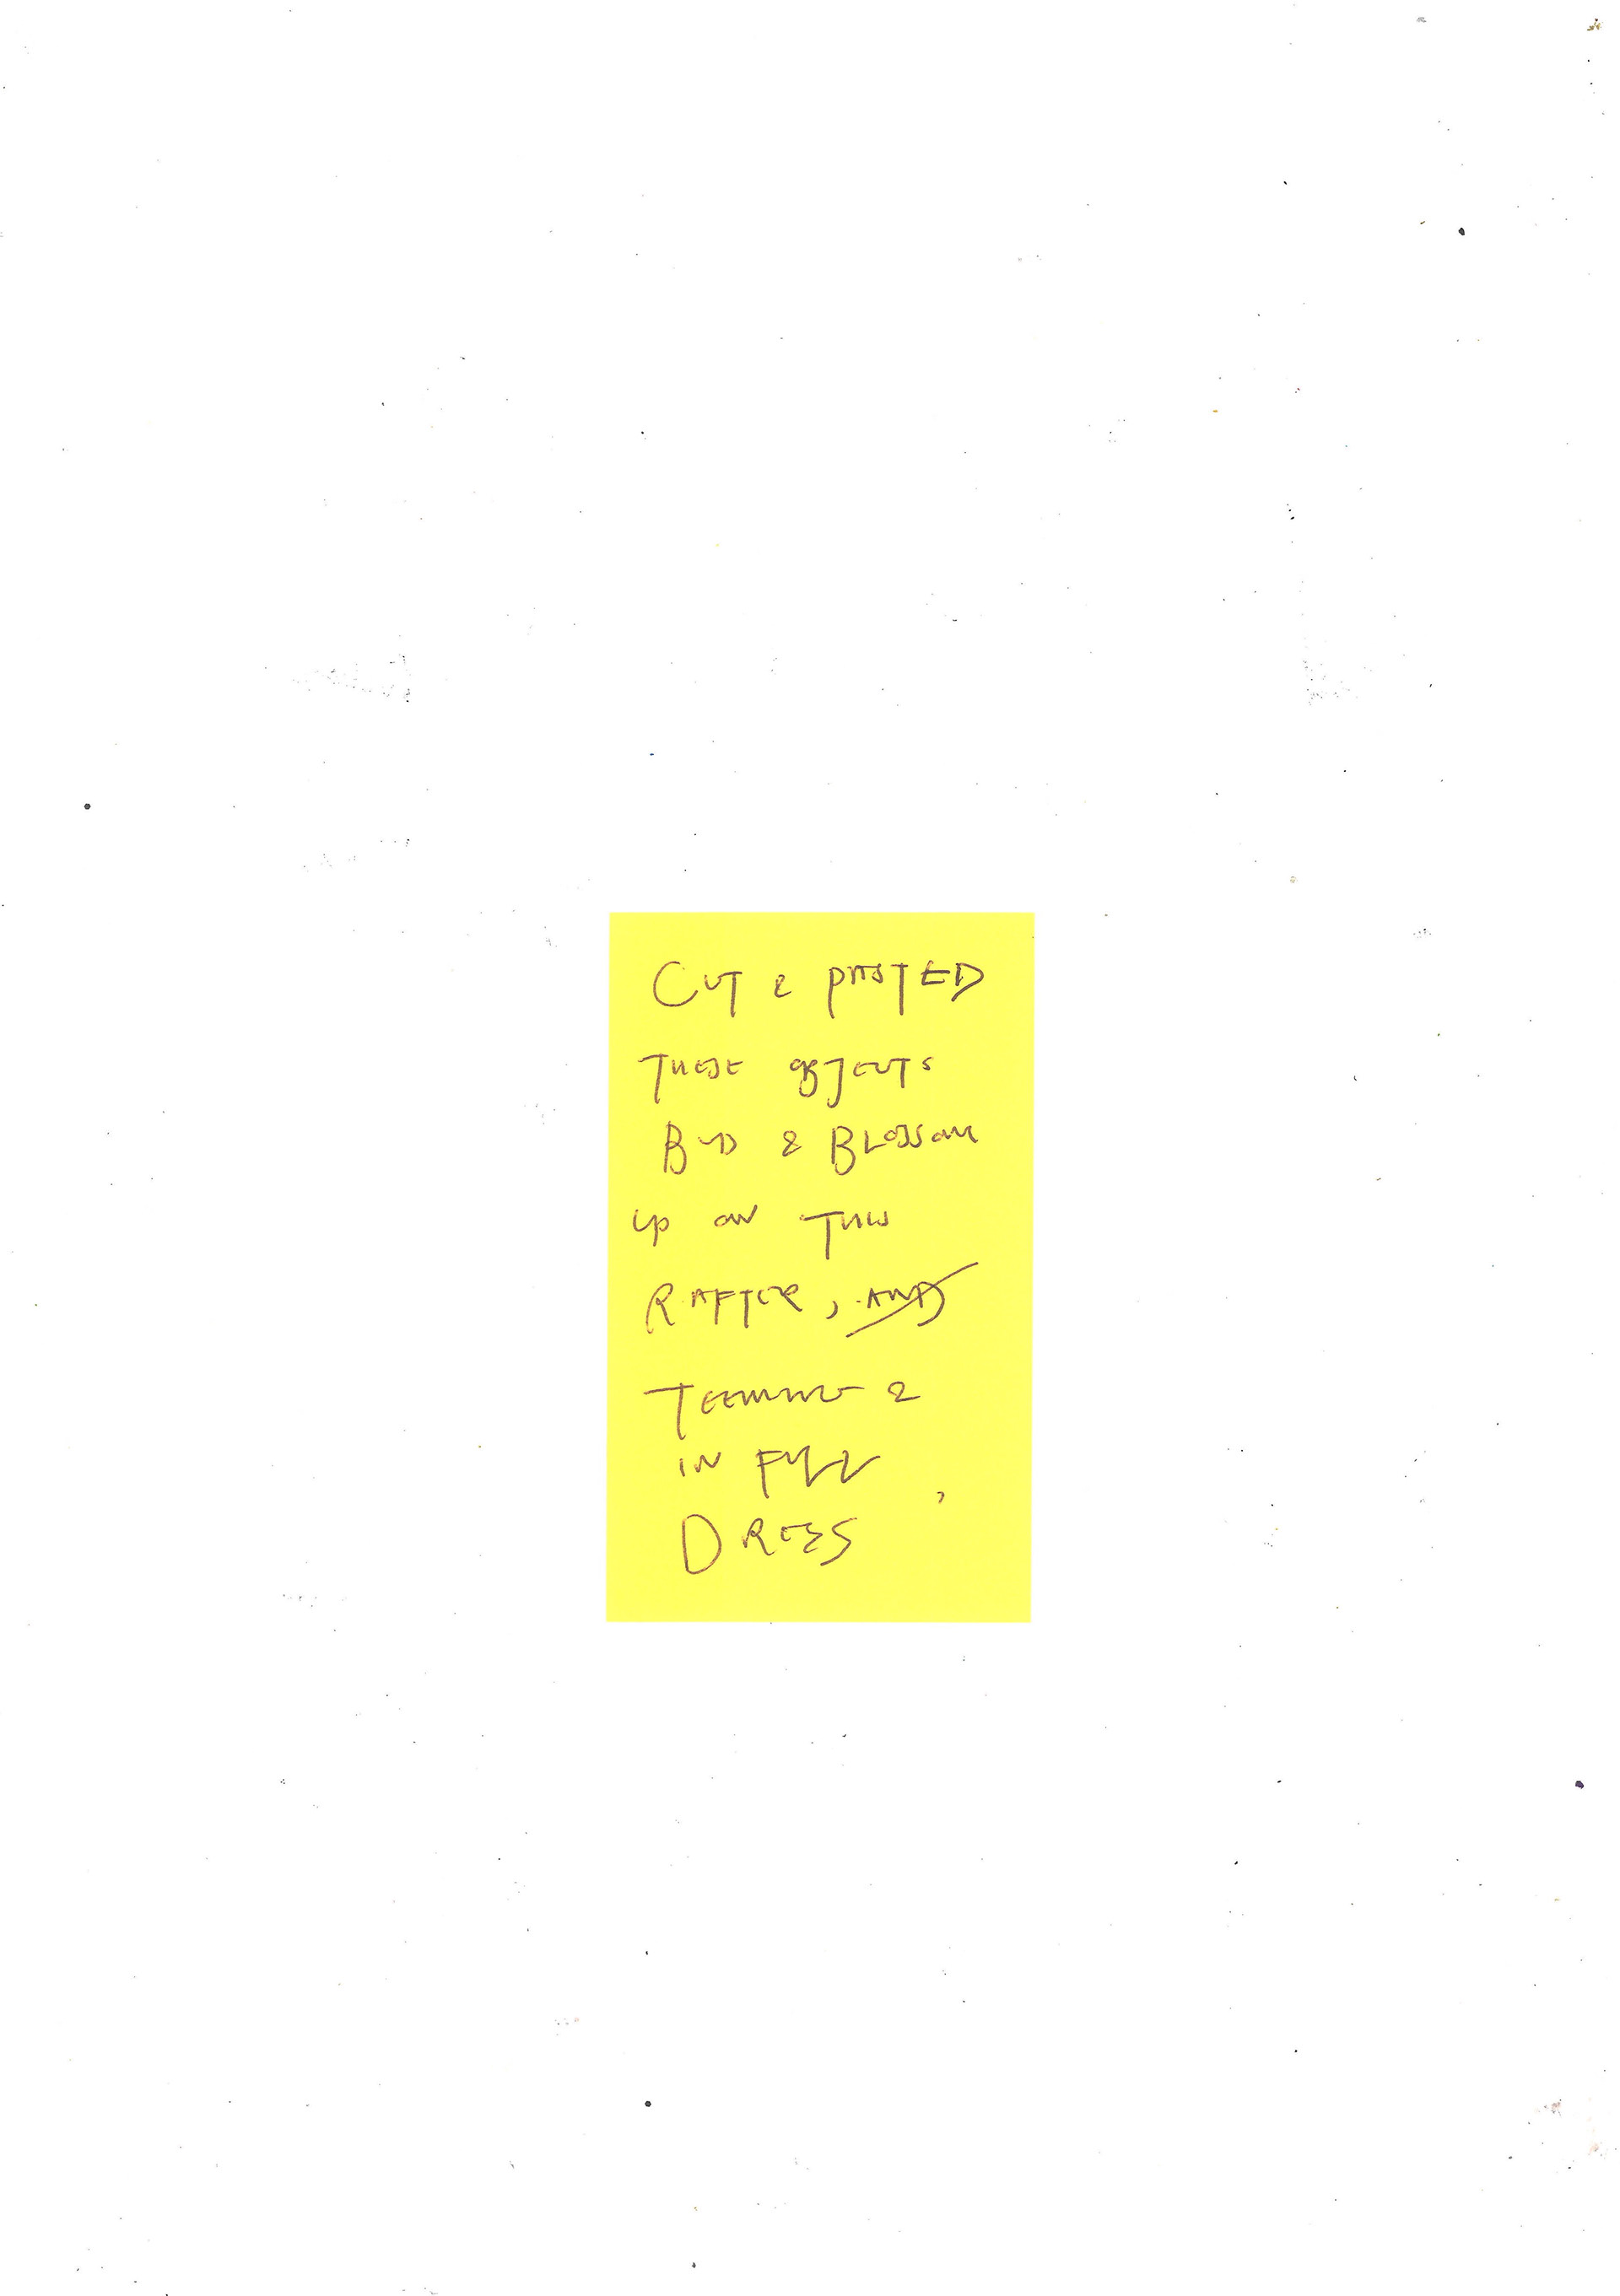 CUT & PASTED
THESE OBJECTS
BUD & BLOSSOM
UP ON THIS
RAFTER, AND
TEEMING &
IN FULL
DRESS,